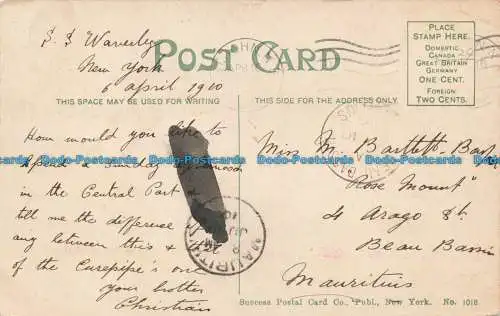 S. S. Waverley
New York
6 April 1910
POST CARD
THIS SPACE MAY BE USED FOR WRITING
THIS SIDE FOR THE ADDRESS ONLY
PLACE
STAMP HERE.
DOMESTIC
CANADA
GREAT BRITAIN
GERMANY
ONE CENT.
FOREIGN
TWO CENTS.
How would you like to
spend a Sunday afternoon
in the Central Park
tell me the difference if
any between this & that
of the Curepipe's one
your brother
Christian
Miss M. Bartlett
"Rose Mount"
4 Arago St.
Beau Bassin
Mauritius
MAURITIUS
Success Postal Card Co., Publ., New York. No. 1018
Dodo-Postcards Dodo-Postcards Dodo-Postcards Dodo-Postcards